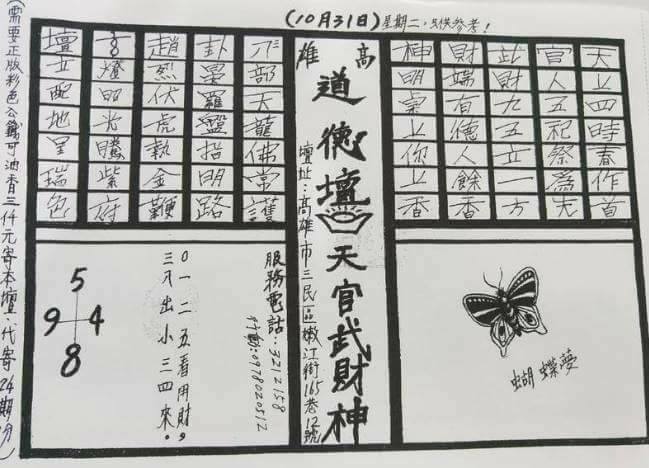 (10月31日)星期二,只供參考!
天上四時春作首
官人五祀祭為先
武財九五立一方
財端有德人餘香
神明桌上你上香
高雄
道德壇天官武財神
壇址:高雄市三民區嫩江街165巷12號
部天龍佛常護
卦墨羅盤指明路
趙烈伏虎執金鞭
高燈昭光騰紫府
壇立配地呈瑞色
蝴蝶夢
服務電話:3212158
行動:0978020512
0一二五看用財,
三入出小三四來。
5
9 4
8
(需要正版彩色公籤可油香三仟元寄本壇.代寄24期份)